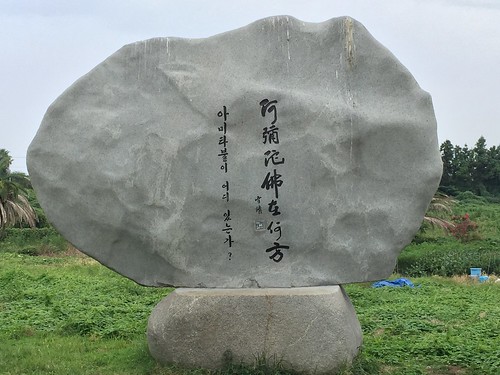 阿彌陀佛在何方
아미타불이 어디 있는가?